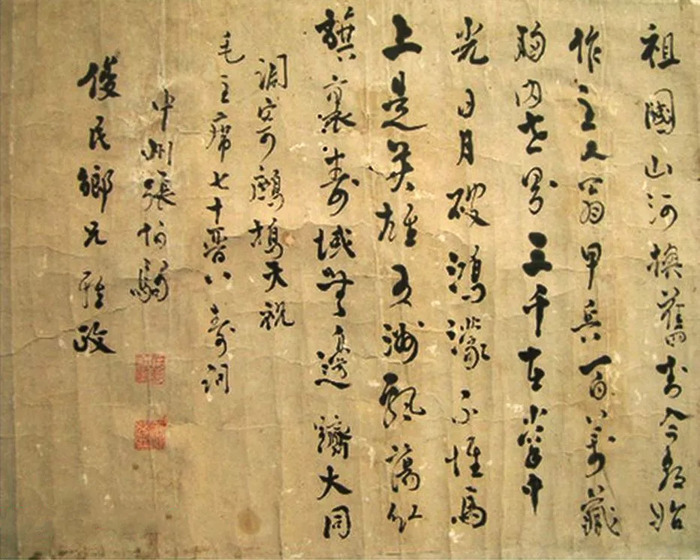 祖國山河換舊封今朝始
作主人翁甲兵百萬藏
胸内世界三千在掌中
光日月破鴻濛不惟馬
上是英雄五洲飄蕩紅
旗裏壽域無邊躋大同
調寄鷓鴣天祝
毛主席七十晉八壽詞
中州張伯駒
俊民鄉兄雅政